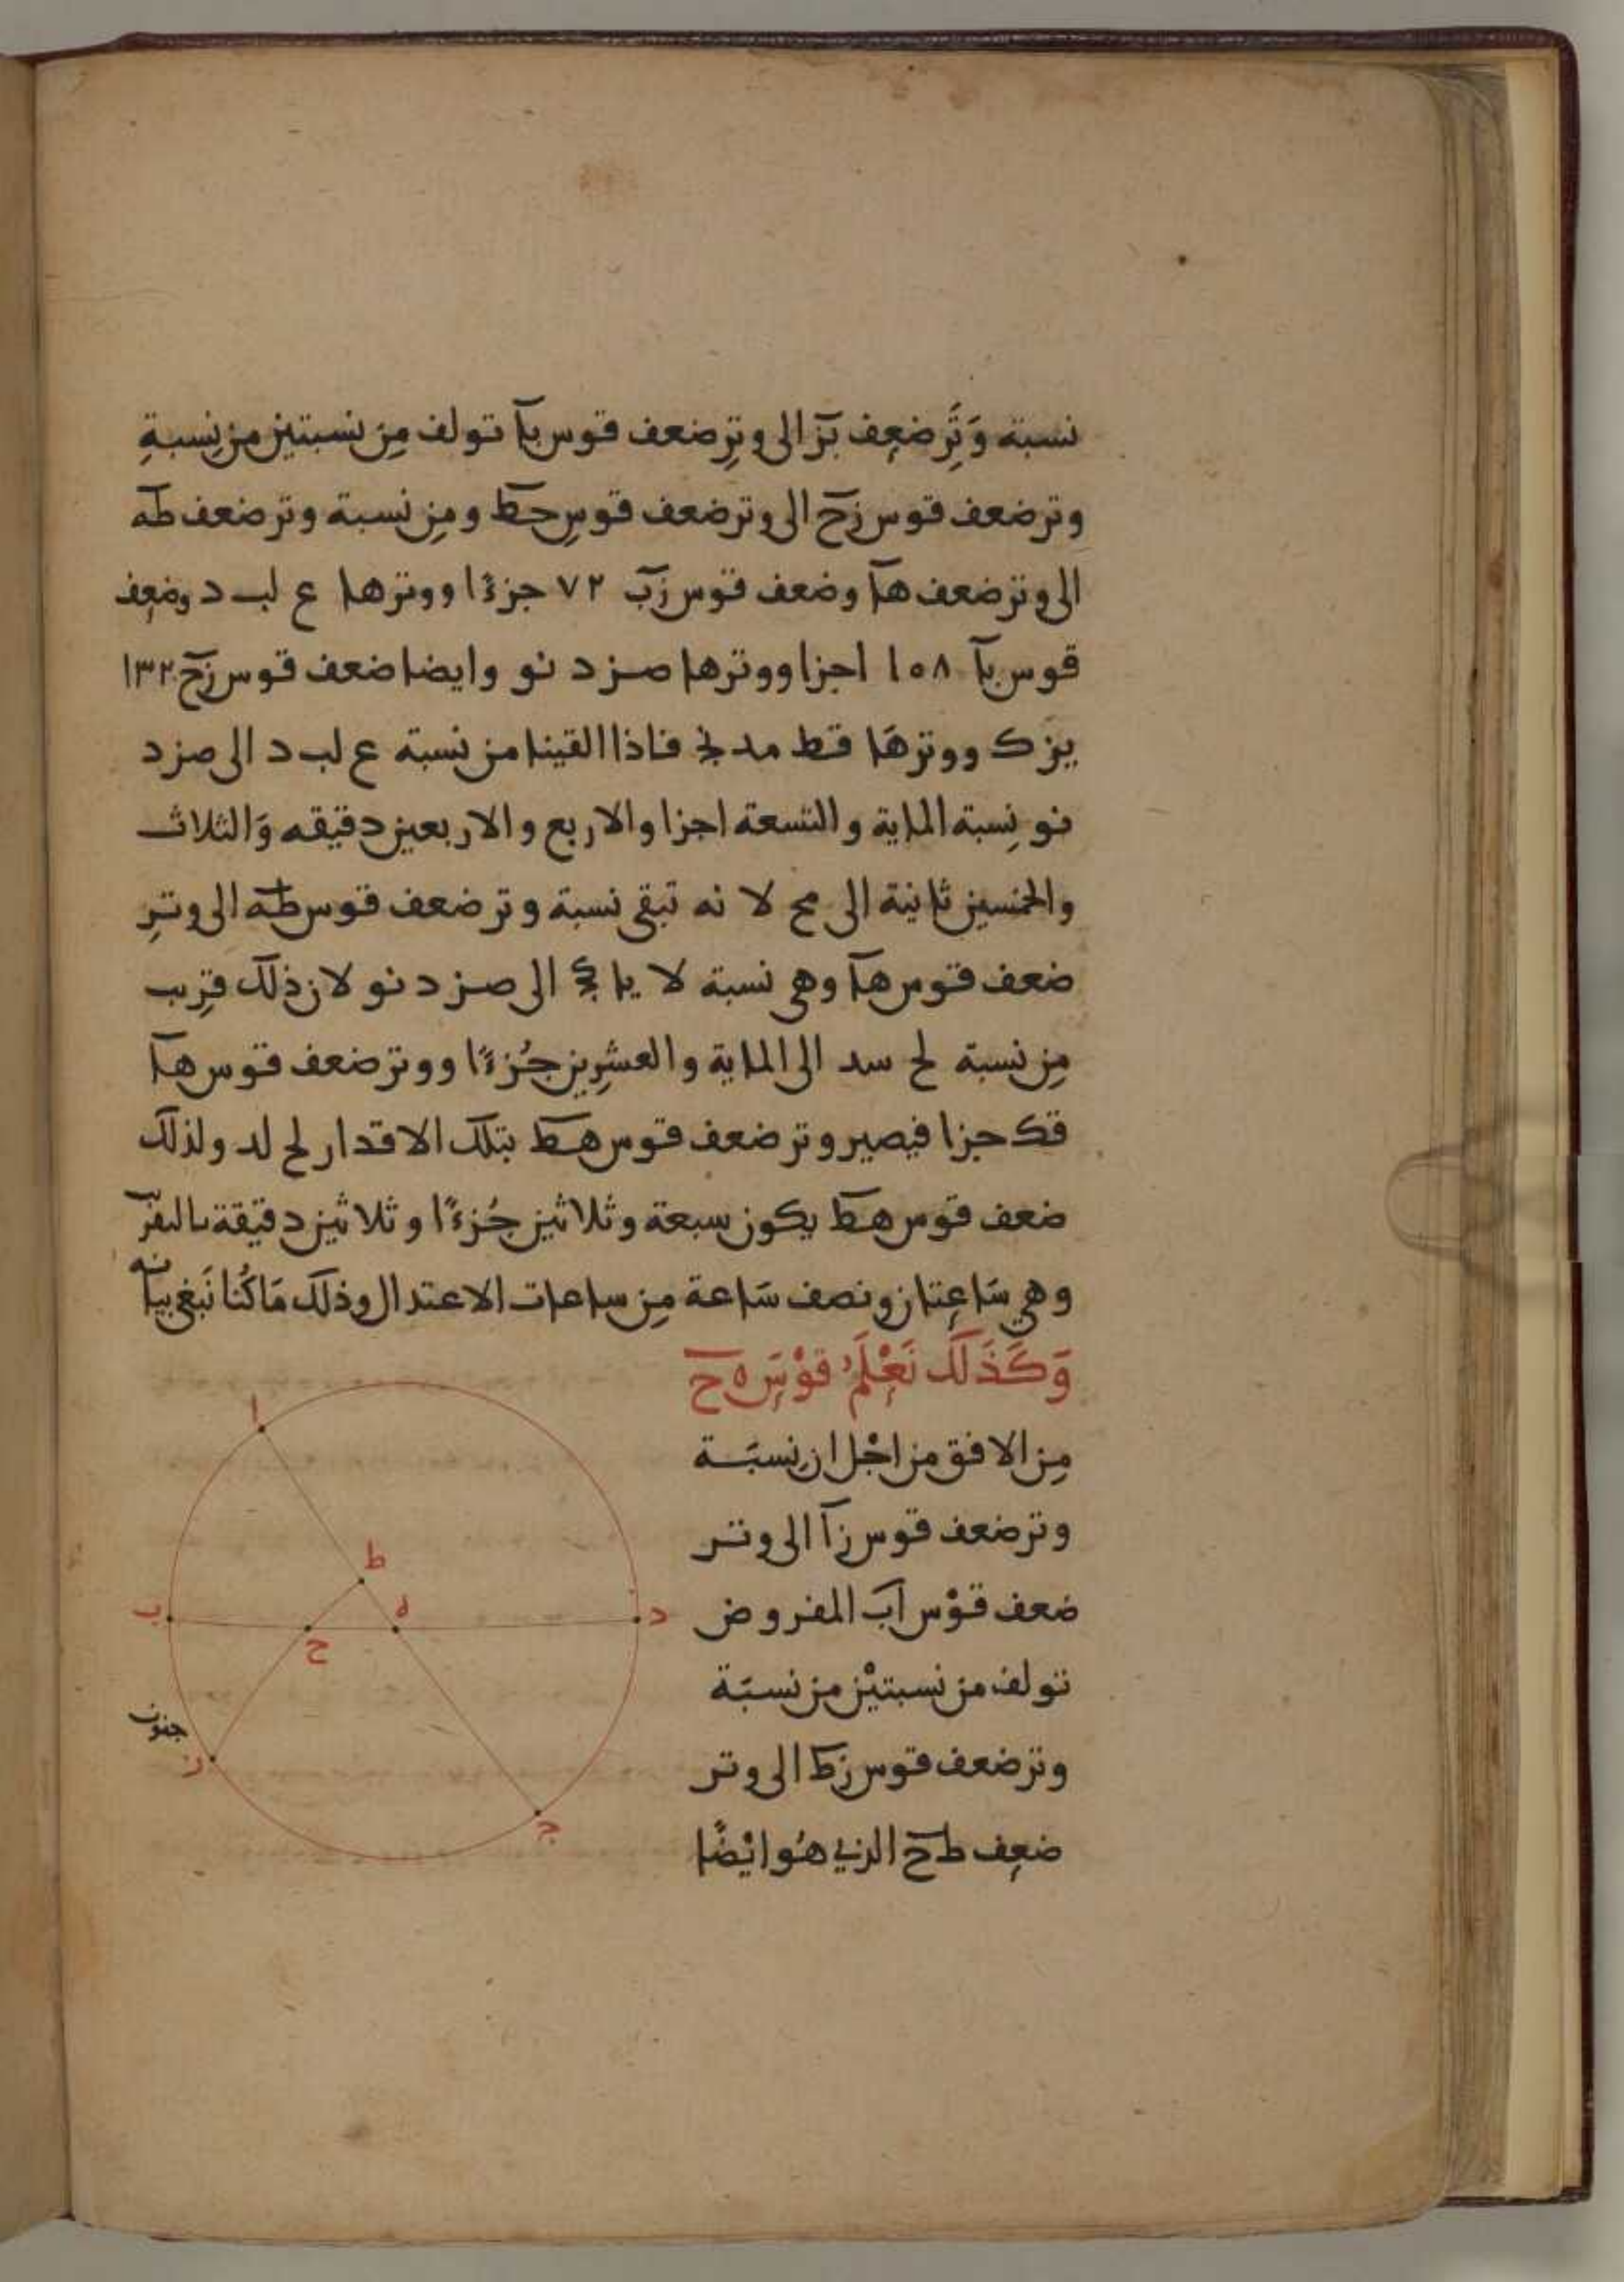 نسبة وَتَرِ ضعِف بز الى وترِ ضعف قوس با تولف مِن نسبتين من نِسبةِ
وتر ضعف قوس زح الى وتر ضعف قوسِ حط ومِن نسبة وتر ضعف طه
الى وتر ضعف ها وضعف قوس زب ٧٢ جزءًا ووترها ع لب د وضعِف
قوس با ١٥٨ اجزا ووترها صز د نو وايضا ضعف قوس زح ١٣٢
يز ك ووترهَا قط مد نج فاذا القينا من نسبة ع لب د الى صز د
نو نِسبة الماية والتسعة اجزا والاربع والاربعين دقيقه وَالثلاث
والخمسين ثانية الى مح لا نه تبقى نسبة وتر ضعف قوس طه الى وترِ
ضعف قوس ها وهى نسبة لا يا الى صز د نو لان ذلك قرِيب
مِن نسبة لح سد الى الماية والعشرِين جُزءًا ووتر ضعف قوس ها
قك جزا فيصير وتر ضعف قوس هط بتلك الاقدار لح لد ولذلك
ضعف قوس هط يكون سبعة وثلاثين جُزءًا وثلاثين دقيقة بالتقريب
وهي سَاعِتان ونصف سَاعة مِن ساعات الاعتدال وذلك مَا كُنا نَبغى بيانه
وَكَذَلَك نَعْلَمُ قوْسَ ه ح
مِن الافق من اجْل ان نِسبَة
وتر ضعف قوس زا الى وتر
ضعف قوْس اب المفروض
تولف من نسبتيْن من نسبَة
وتر ضعف قوس زط الى وتر
ضعِف طح الذي هُو ايْضًا
ا
ط
ه
ب
د
ح
جنوب
ز
ج